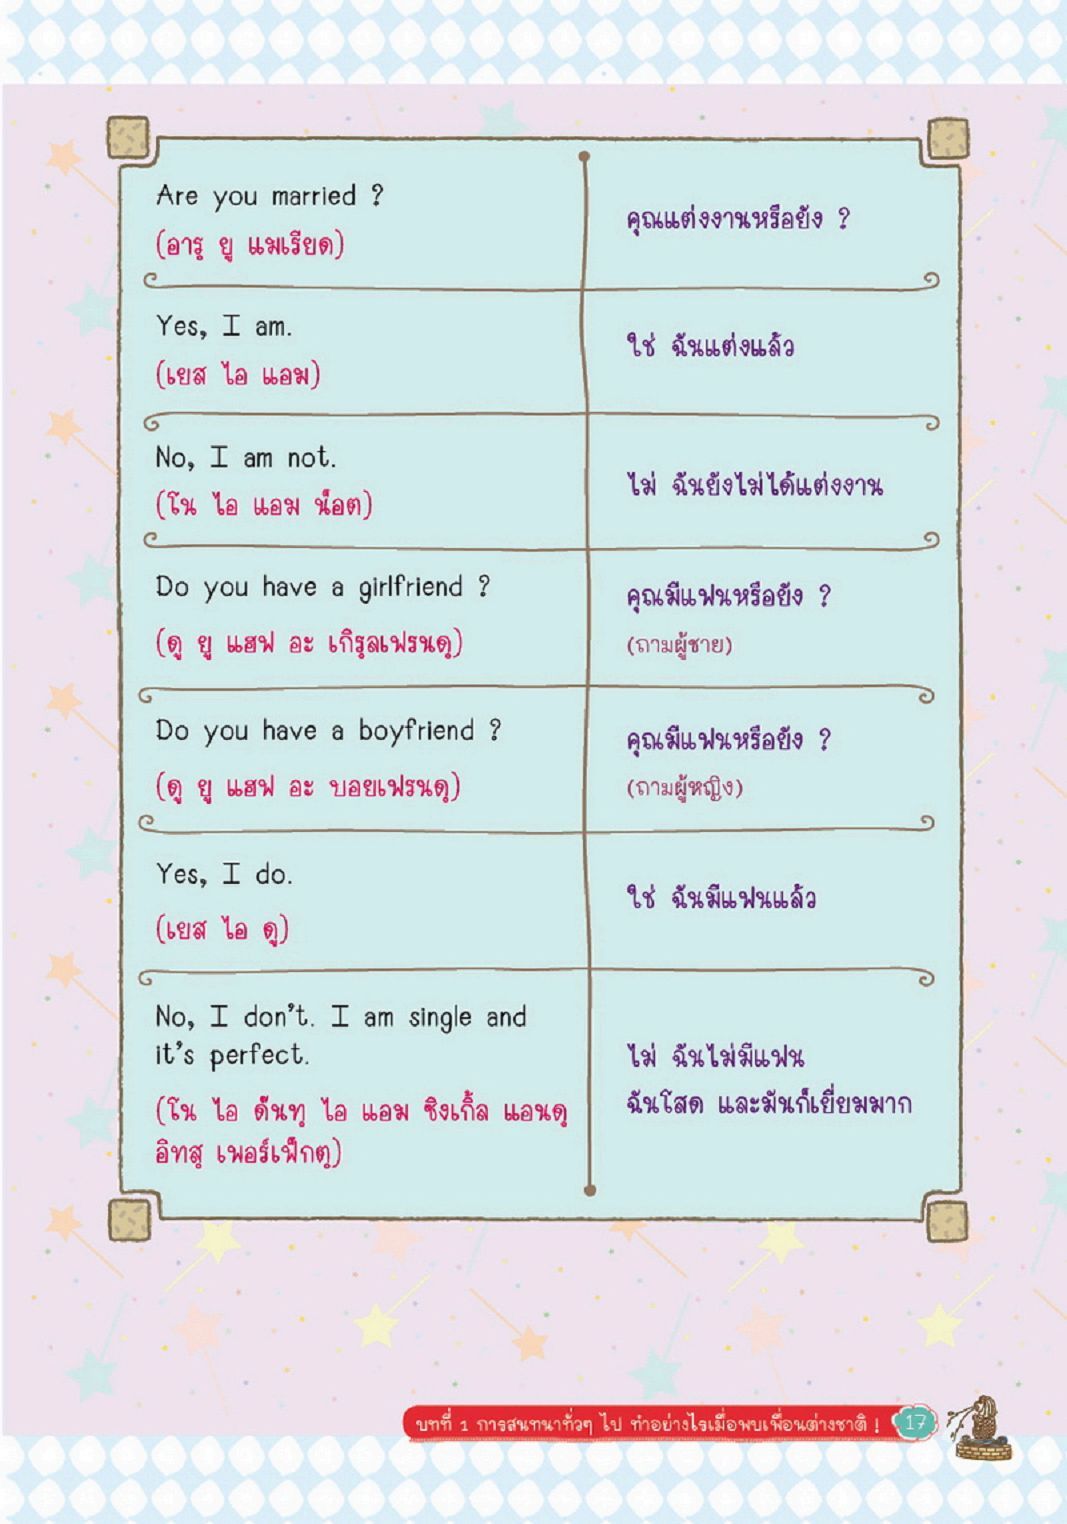 Are you married ?
(อารฺ ยู แมเรียด)
คุณแต่งงานหรือยัง ?
Yes, I am.
(เยส ไอ แอม)
ใช่ ฉันแต่งแล้ว
No, I am not.
(โน ไอ แอม น็อต)
ไม่ ฉันยังไม่ได้แต่งงาน
Do you have a girlfriend ?
(ดู ยู แฮฟ อะ เกิรฺลเฟรนดฺ)
คุณมีแฟนหรือยัง ?
(ถามผู้ชาย)
Do you have a boyfriend ?
(ดู ยู แฮฟ อะ บอยเฟรนดฺ)
คุณมีแฟนหรือยัง ?
(ถามผู้หญิง)
Yes, I do.
(เยส ไอ ดู)
ใช่ ฉันมีแฟนแล้ว
No, I don't. I am single and
it's perfect.
(โน ไอ ด๊นทฺ ไอ แอม ซิงเกิ้ล แอนดฺ
อิทสฺ เพอร์เฟ็กตฺ)
ไม่ ฉันไม่มีแฟน
ฉันโสด และมันก็เยี่ยมมาก
บทที่ 1 การสนทนาทั่วๆ ไป ทำอย่างไรเมื่อพบเพื่อนต่างชาติ ! 17